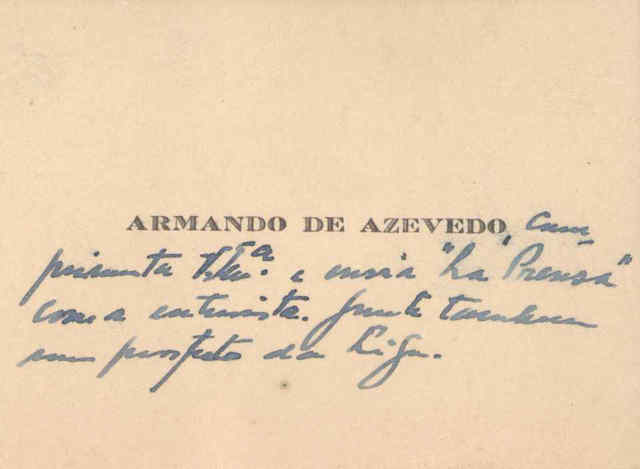 ARMANDO DE AZEVEDO, cum-
primenta V. Exª. e envia "La Prensa"
com a entrevista. Junta tambem
um prospeto da Liga.